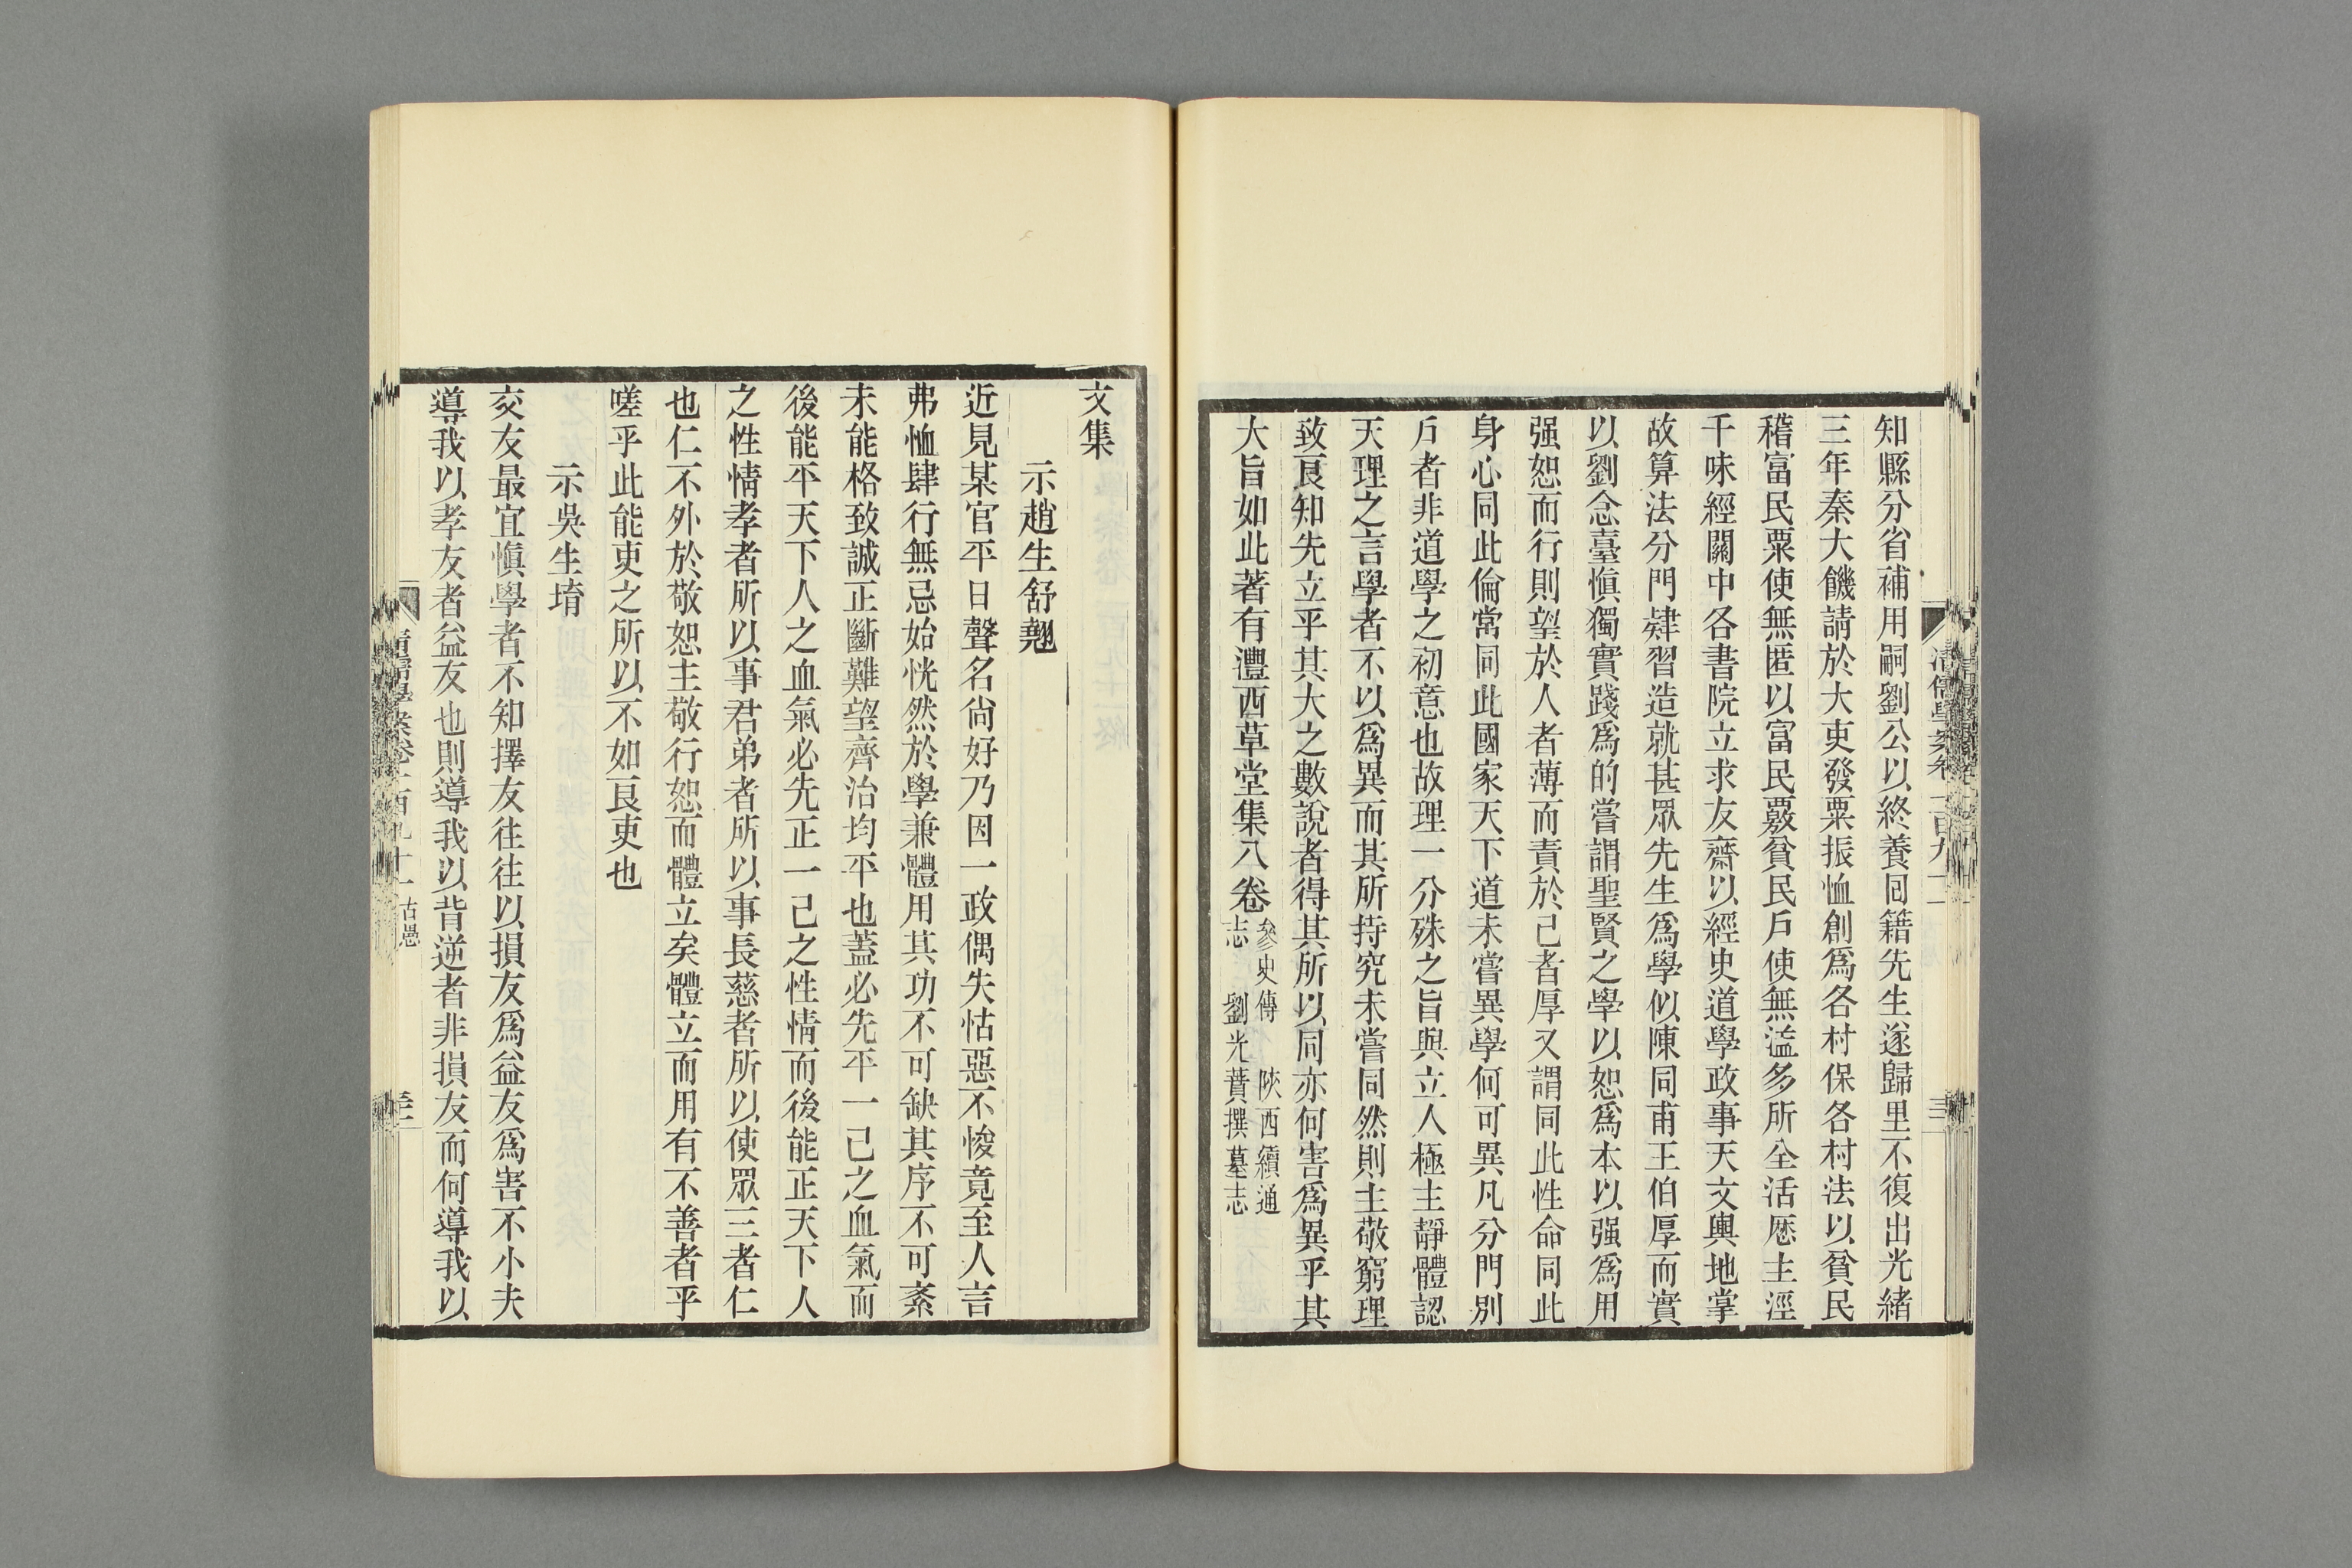 知縣分省補用嗣劉公以終養囘籍先生遂歸里不復出光緒
三年秦大饑請於大吏發粟振恤創爲各村保各村法以貧民
稽富民粟使無匿以富民覈貧民戶使無濫多所全活厯主涇
干味經關中各書院立求友齋以經史道學政事天文輿地掌
故算法分門肄習造就甚眾先生爲學似陳同甫王伯厚而實
以劉念臺愼獨實踐爲的嘗謂聖賢之學以恕爲本以强爲用
强恕而行則望於人者薄而責於己者厚又謂同此性命同此
身心同此倫常同此國家天下道未嘗異學何可異凡分門別
戶者非道學之初意也故理一分殊之旨與立人極主靜體認
天理之言學者不以爲異而其所持究未嘗同然則主敬窮理
致良知先立乎其大之數說者得其所以同亦何害爲異乎其
大旨如此著有灃西草堂集八卷
參史傳 陝西續通
志 劉光蕡撰墓志
文集
示趙生舒翹
近見某官平日聲名尙好乃因一政偶失怙惡不悛竟至人言
弗恤肆行無忌始恍然於學兼體用其功不可缺其序不可紊
未能格致誠正斷難望齊治均平也蓋必先平一己之血氣而
後能平天下人之血氣必先正一己之性情而後能正天下人
之性情孝者所以事君弟者所以事長慈者所以使眾三者仁
也仁不外於敬恕主敬行恕而體立矣體立而用有不善者乎
嗟乎此能吏之所以不如良吏也
示吳生堉
交友最宜愼學者不知擇友往往以損友爲益友爲害不小夫
導我以孝友者益友也則導我以背逆者非損友而何導我以
清儒學案卷一百九十一 古愚